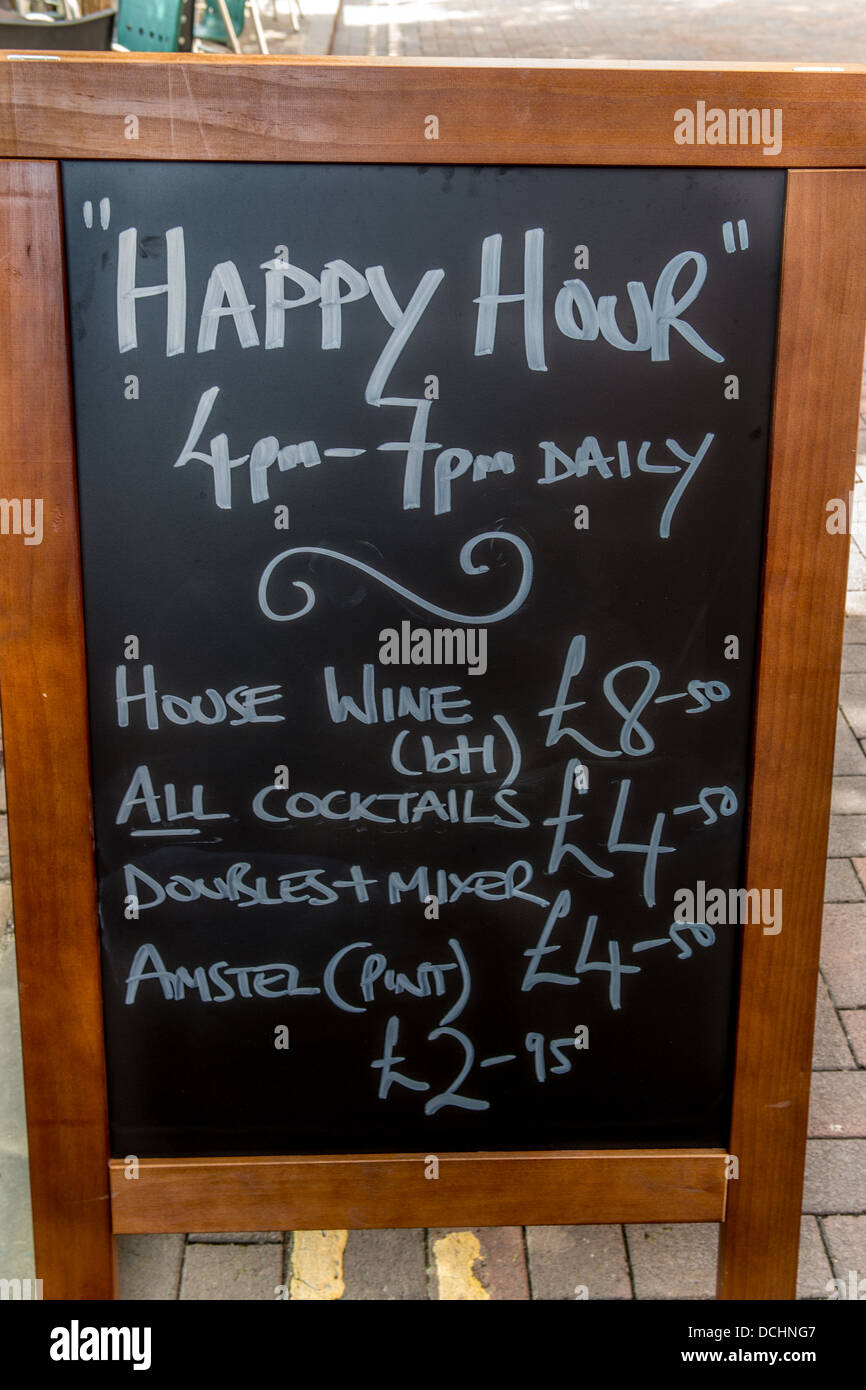 "HAPPY HOUR"
4pm-7pm DAILY
HOUSE WINE £8-50
(btl)
ALL COCKTAILS £4-50
DOUBLES + MIXER
£4-50
AMSTEL (PINT)
£2-95
alamy
alamy
a
a
alamy stock photo
DCHNG7
www.alamy.com